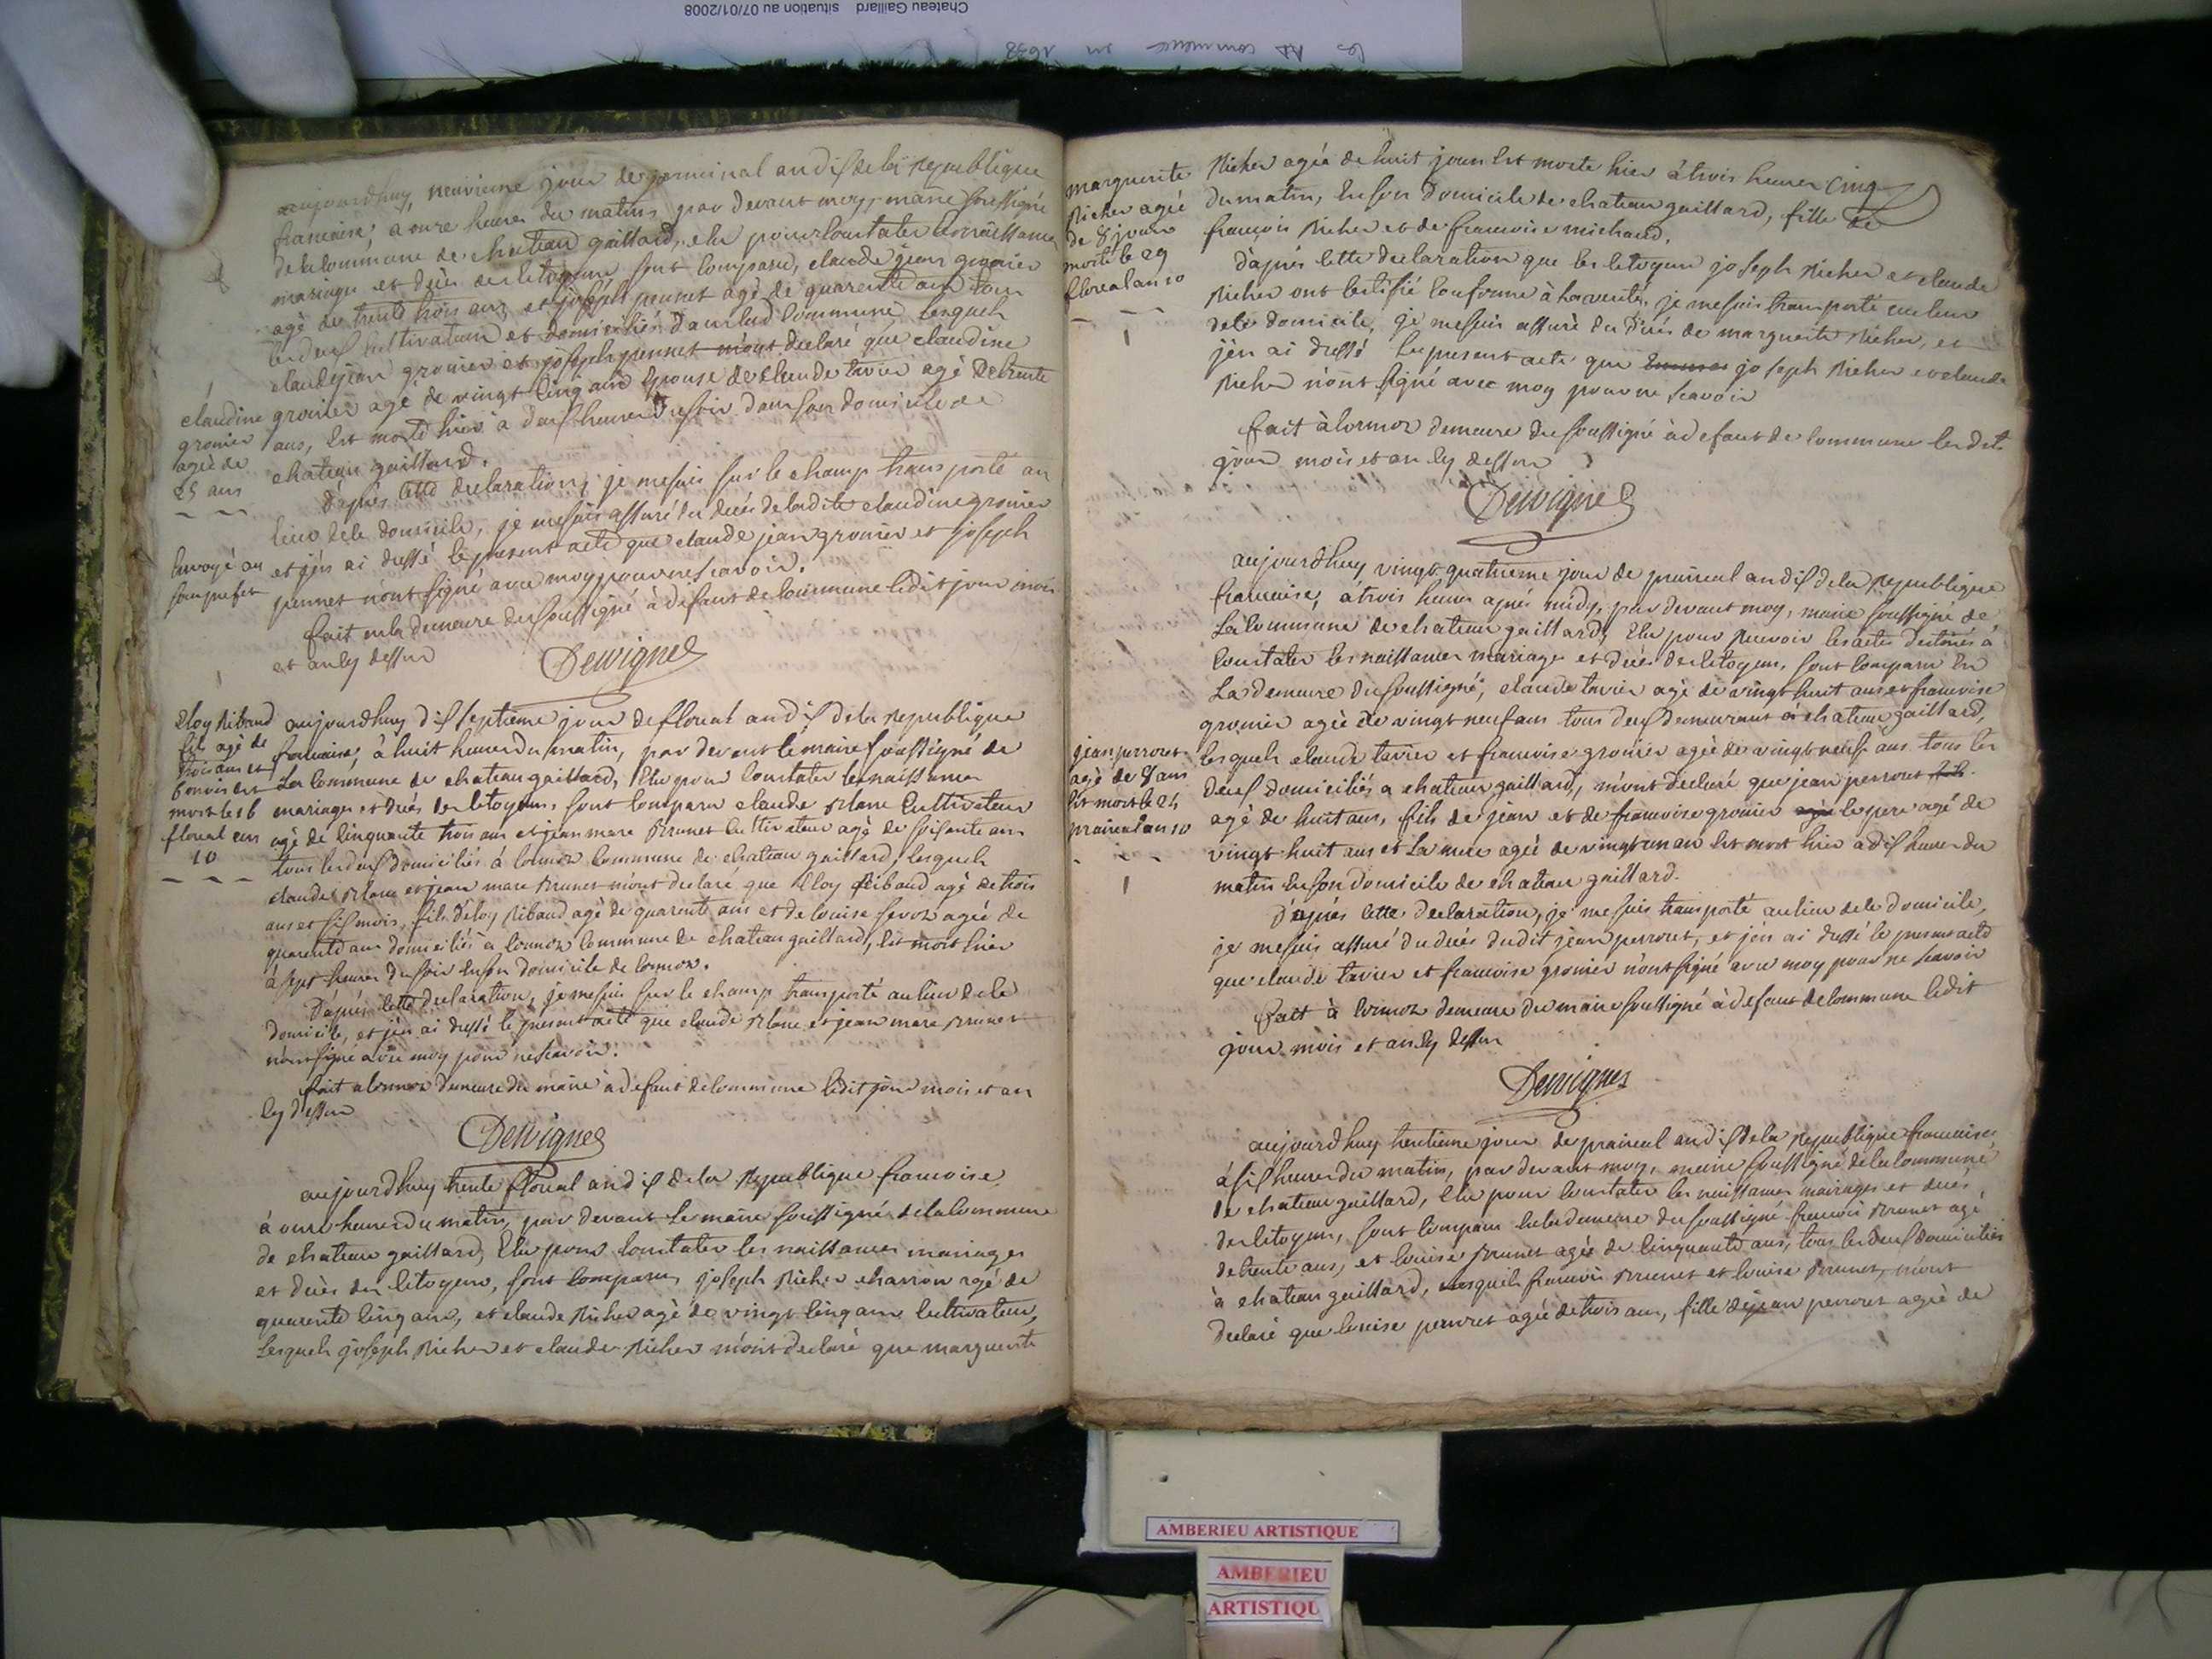 Chateau Gaillard situation au 07/01/2008
les commence en 1638
aujourdhuy, neuvieme jour de germinal an dix de la republique
francaise, a onze heures du matin, par devant moy, maire soussigné
de la commune de chateau gaillard, elu pour constater les naissances
mariages et décès des citoyens sont comparus, claude jean gronier
agé de trente trois ans et joseph pennet agé de quarente ans tous
les deux cultivateurs et domiciliés dans lad commune lesquels
claude jean gronier et joseph pennet m'ont declaré que claudine
gronier agé de vingt cinq ans epouse de claude tavier agé de trente
ans, est morte hier à deux heures du soir dans son domicile de
chateau gaillard.
claudine
gronier
agèe de
25 ans
D'après cette declaration, je me suis sur le champ transporté au
lieu dele domicile, je me suis assuré du decès de ladite claudine gronier
et j'en ai dressé le present acte que claude jean gronier et joseph
pennet n'ont signé avec moy pour ne scavoir.
envoyé au
sous prefet
fait en la demeure du soussigné à defaut de commune ledit jour mois
et an cy dessus
Dewignes
eloy Ribaud
fils agé de
trois ans et
6 mois est
mort le 16
floreal an
10
aujourdhuy dix septieme jour de floreal an dix de la republique
francaise, à huit heures du matin, par devant le maire soussigné de
la commune de chateau gaillard, elu pour constater les naissances
mariages et décès des citoyens, sont comparus claude blanc cultivateur
agè de cinquante trois ans et jean marc brunet cultivateur agé de soisante ans
tous les deux domiciliés à lormoz commune de chateau gaillard, lesquels
claude blanc et jean marc brunet m'ont declaré que eloy Ribaud agè de trois
ans et six mois, fils d'eloy Ribaud agè de quarente ans et de louise agèe de
quarente ans domiciliés a lormoz commune de chateau gaillard, est mort hier
à sept heures du soir en son domicile de lormoz.
D'après cette declaration, je me suis sur le champ transporté au lieu dele
domicile, et j'en ai dressé le present acte que claude blanc et jean marc brunet
n'ont signé avec moy pour ne scavoir.
fait a lormoz demeure du maire à defaut de commune ledit jour mois et an
cy dessus
Dewignes
aujourdhuy trente floreal an dix de la republique francoise
à onze heures du matin, par devant le maire soussigné de la commune
de chateau gaillard, elu pour constater les naissances mariages
et décès des citoyens, sont comparus joseph Richer charron agé de
quarente cinq ans, et claude Richer agè de vingt cinq ans cultivateur,
lesquels joseph Richer et claude Richer m'ont declaré que marguerite
marguerite
Richer agèe
de 8 jours
morte le 29
floreal an 10
Richer agèe de huit jours est morte hier à trois heures cinq
du matin, en son domicile de chateau gaillard, fille de
françois Richer et de francoise michaud.
d'après cette declaration que les citoyens joseph Richer et claude
Richer ont certifié conforme à la verité, je me suis transporté au lieu
dele domicile, je me suis assuré du décès de marguerite Richer, et
j'en ai dressé le present acte que joseph Richer et claude
Richer n'ont signé avec moy pour ne scavoir
fait à lormoz demeure du soussigné à defaut de commune lesdits
jour mois et an cy dessus
Dewignes
aujourdhuy vingt quatrieme jour de prairial an dix de la republique
francaise, à trois heures après midy, par devant moy, maire soussigné de
la commune de chateau gaillard, elu pour recevoir les actes destinés à
constater les naissances mariages et décès des citoyens, sont comparu en
la demeure du soussigné, claude tavier agè de vingt huit ans et francoise
gronier agèe de vingt neuf ans tous deux demeurant à chateau gaillard,
lesquels claude tavier et francoise gronier agèe de vingt neuf ans tous les
deux domiciliés a chateau gaillard, m'ont declaré que jean perrouet fils
agè de huit ans, fils de jean et de francoise gronier agè le pere agé de
vingt huit ans et la mere agèe de vingt un an est mort hier a dix heures du
matin en son domicile de chateau gaillard.
jean perrouet
agè de 8 ans
est mort le 24
prairial an 10
d'après cette declaration, je me suis transporté au lieu dele domicile,
je me suis assuré du decès dudit jean perrouet, et j'en ai dressé le present acte
que claude tavier et francoise gronier n'ont signé avec moy pour ne scavoir
fait à lormoz demeure du maire soussigné à defaut de commune ledit
jour mois et an cy dessus
Dewignes
aujourdhuy trentieme jour de prairial an dix de la republique francaise,
à six heures du matin, par devant moy, maire soussigné de la commune
de chateau gaillard, elu pour constater les naissances mairages et decès
des citoyens, sont comparus en la demeure du soussigné francois brunet agé
de trente ans, et louise brunet agèe de cinquante ans, tous les deux domiciliés
à chateau gaillard, lesquels francois brunet et louise brunet, m'ont
declaré que louise perrouet agèe de trois ans, fille de jean perrouet agèe de
AMBERIEU ARTISTIQUE
AMBERIEU
ARTISTIQU